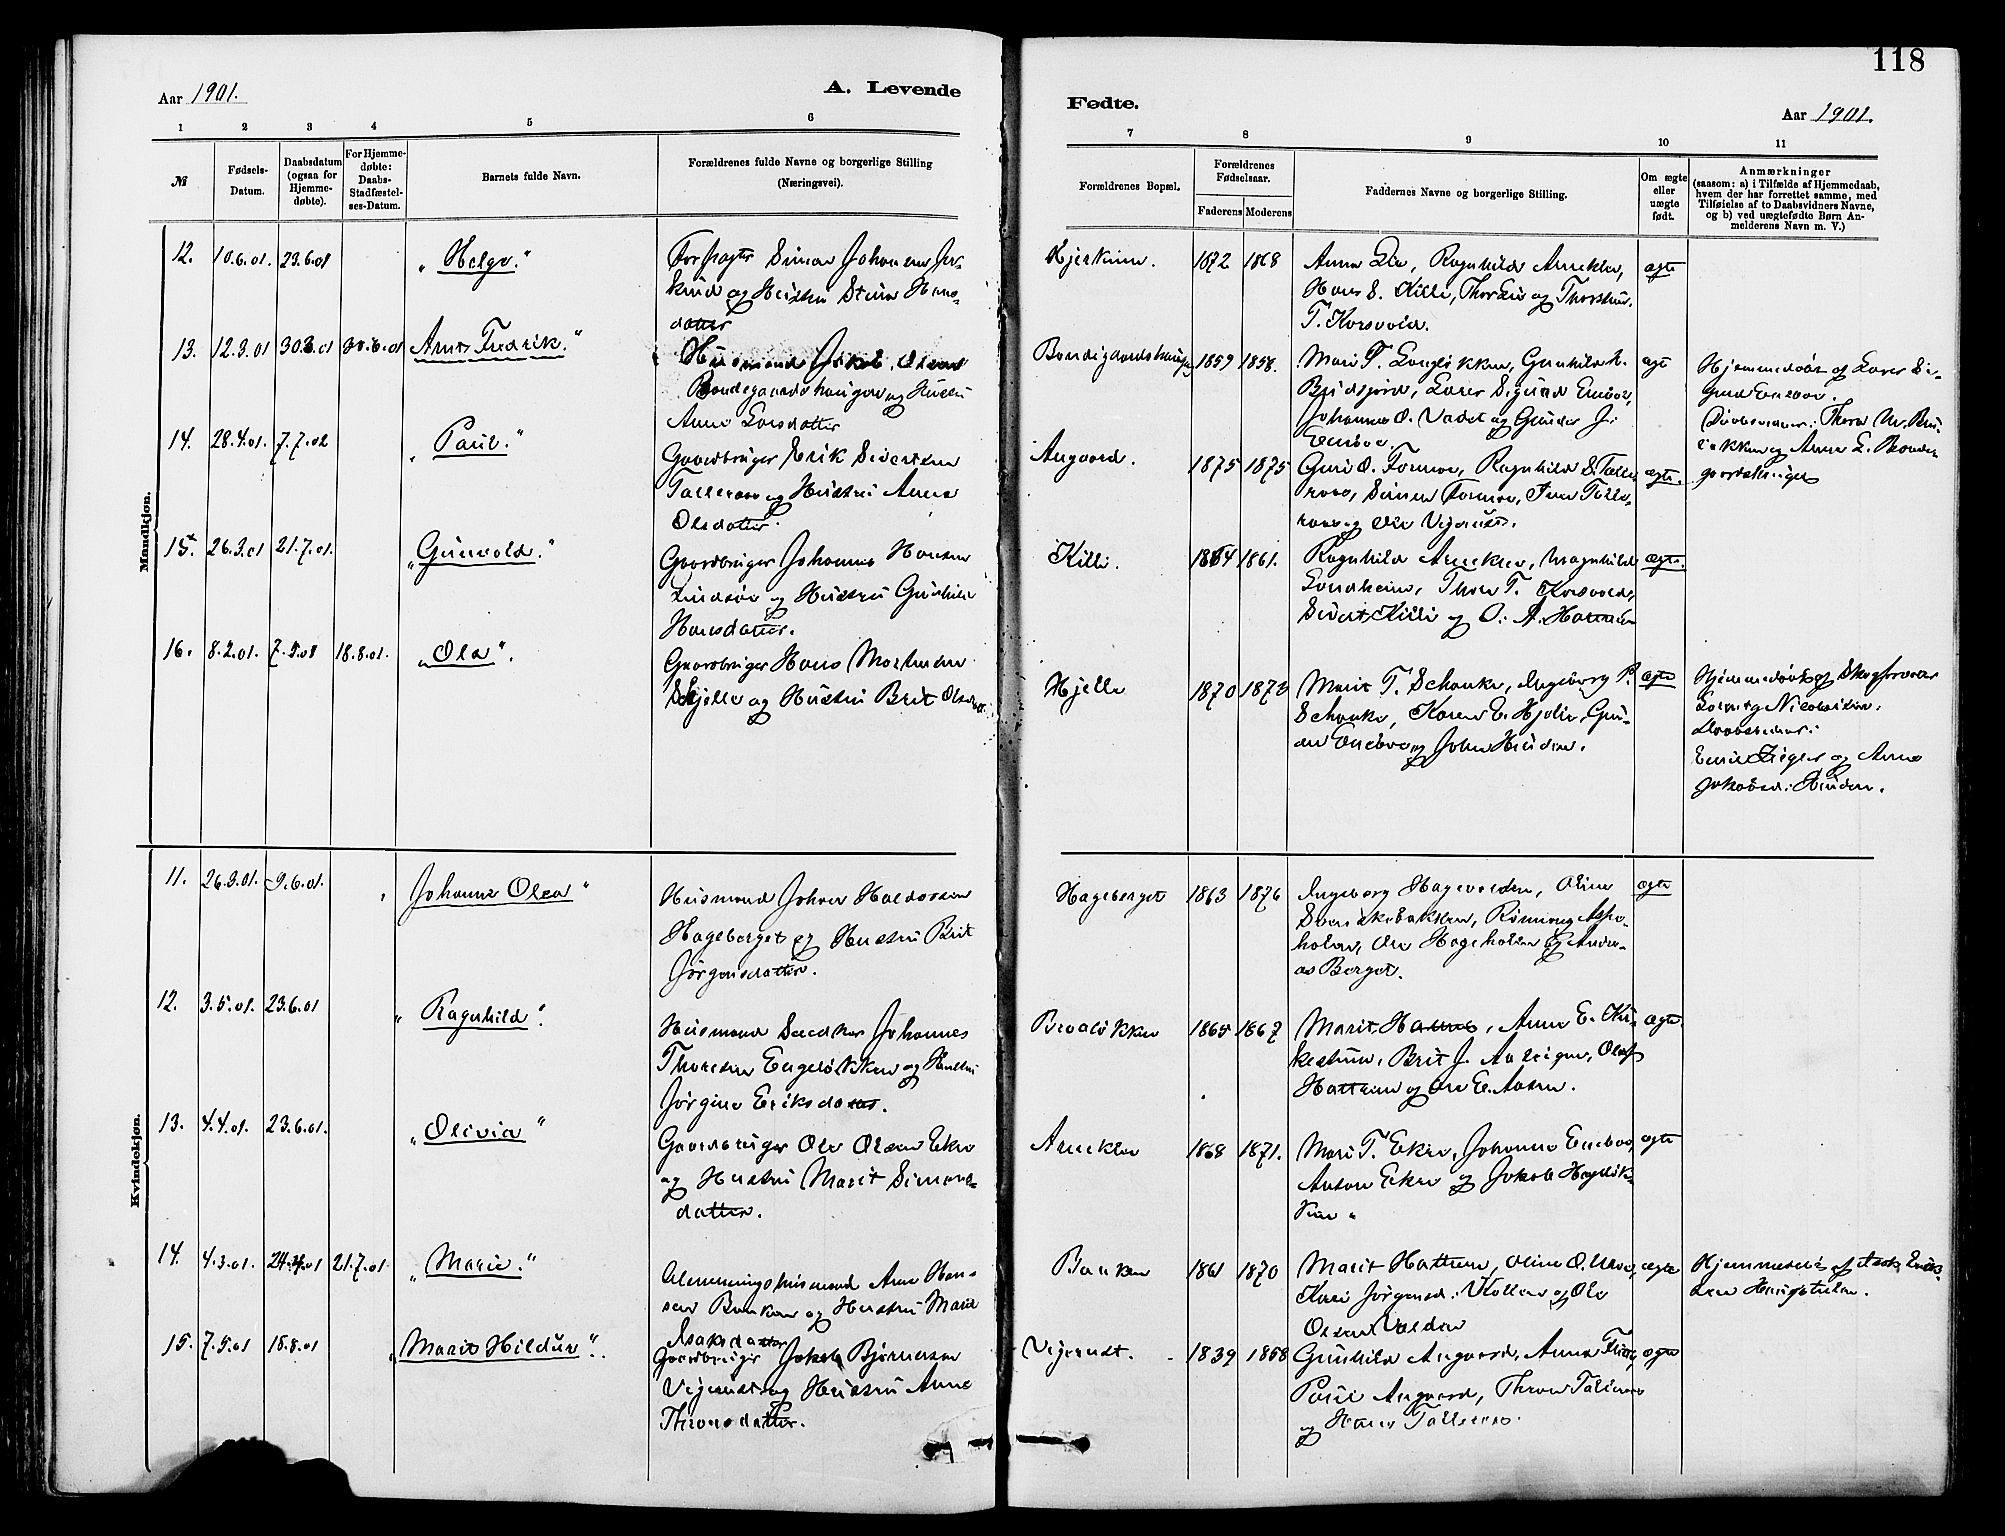 118
Aar 1901.
A. Levende
Fødte.
Aar 1901.
1 2 3 4 5 6
7 8 9 10 11
№
Fødsels-
Datum.
Daabsdatum
(ogsaa for
Hjemme-
døbte).
For Hjemme-
døbte:
Daabs-
Stadfæstel-
ses-Datum.
Barnets fulde Navn.
Forældrenes fulde Navne og borgerlige Stilling
(Næringsvei).
Forældrenes Bopæl.
Forældrenes
Fødselsaar.
Faderens Moderens
Faddernes Navne og borgerlige Stilling.
Om ægte
eller
uægte
født.
Anmærkninger
(saasom: a) i Tilfælde af Hjemmedaab,
hvem der har forrettet samme, med
Tilføielse af to Daabsvidners Navne,
og b) ved uægtefødte Børn An-
melderens Navn m. V.)
Mandkjøn.
12. 10.6.01. 23.6.01 "Helge."
Forpagter Simon Johansen
og Hustru Hans-
datter
Hjerkinn. 1872 1868
Anna Lie, Ragnhild Arneklev,
Hans S. Killi, Thor Lie og Thorstein
T. Korsvold.
ægte
13. 12.3.01 30.3.01 30.6.01 Arnt Fredrik."
Husmand Jakob Olsen
Bondegaardshaugen og Hustru
Anne Larsdatter
1859 1858.
Mari T. Langløkken, Gunhild
Lars Sigurd Enebo,
Johannes O. Vadet og Gunder J.
Enebo.
ægte
Hjemmedøbt af Lars Si-
gurd Enebo.
Daabsvidner: Thora M.
og Anne L. Bonde-
gaardshaugen
14. 28.4.01. 7.7.01 "Paul."
Gaardbruger Erik Sivertsen
Talleraas og Hustru Anne
Olsdatter.
Angaard. 1875 1875
Guri O. Formo, Ragnhild S. Talle-
raas, Simen Formo, Iver Talle-
raas og Ole Vigerust.
ægte.
15. 26.3.01 21.7.01. "Gunvald."
Gaardbruger Johannes Hansen
Lindsø og Hustru Gunhild
Hansdatter.
Killi. 1864 1861.
Ragnhild Arneklev, Magnhild
Sondheim, Thor T. Korsvold,
Sivert Killi og O. A. Hattrem
ægte.
16. 8.2.01. 18.8.01. "Ola".
Gaardbruger Hans Mortensen
Hjelle og Hustru Brit Olsdatter.
Hjelle 1870 1872
Marit T. Schanke, Ingeborg P.
Schanke, Karen E. Hjelle, Gun-
der Enebo og John Heusen.
ægte
Hjemmedøbt af Skogforvalter
Nicolaisen.
Daabsvidner:
Emil Zigler og Anne
Jakobsd.
Kvindekjøn.
11. 26.3.01. 9.6.01. Johanne Olea"
Husmand Johan Haldorsen
Hageberget og Hustru Brit
Jørgensdatter.
Hageberget 1863 1876
Ingeborg Hagevolden, Oline
Svenskebakken, Rønnaug Aspe-
holen, Ole Hageholen og Andre-
as Berget.
ægte
12. 3.5.01. 23.6.01 "Ragnhild".
Husmand Snedker Johannes
Thoresen Engeløkken og Hustru
Jørgine Eriksdatter.
Broløkken 1865 1867
Marit Hattrem, Anne E. Kir-
kestuen, Brit J. Aaleigen, Olaf
Hattrem og Ole E. Aasen.
ægte.
13. 4.4.01. 23.6.01. "Olivia"
Gaardbruger Ole Olsen Ekre
og Hustru Marit Simens-
datter.
Arneklev 1868 1871.
Mari T. Ekre, Johanne Enebo,
Anton Ekre og Jakob Hageløk-
ken.
ægte
14. 4.3.01. 24.4.01 21.7.01. "Marie."
Almenningshusmand Arne Han-
sen Banken og Hustru Marit
Isaksdatter
Banken 1861 1870
Marit Hattrem, Oline O. Ulvo,
Kari Jørgensd. Kollen og Ole
Olsen Volden
ægte
Hjemmedøbt af Isak Erik-
sen Haugstulen.
15. 7.5.01 18.8.01 "Marit Hildur".
Gaardbruger Jakob Bjørnersen
Vigerust og Hustru Anne
Thronsdatter.
Vigerust. 1839 1858
Gunhild Angaard, Anne
Paul Angaard, Thron Talleraas
og Hans Talleraas.
ægte